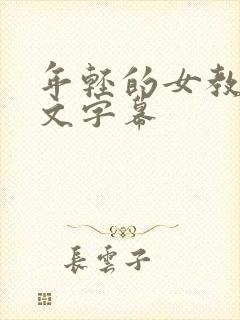 年輕的女教
文字幕
長雲子